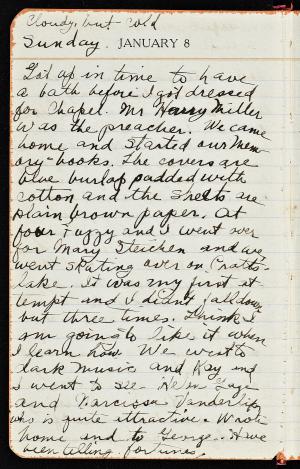 Cloudy, but cold
Sunday. JANUARY 8
Got up in time to have
a bath before I got dressed
for Chapel. Mr Harry Miller
was the preacher. We came
home and started our Mem
ory-books. The covers are
blue burlap padded with
cotton and the sheets are
plain brown paper. At
four Fuzzy and I went over
for Mary Steichen and we
went skating over on Crafts
lake. It was my first at
tempt and I didn't fall down
but three times. Think I
am going to like it when
I learn how. We went to
dark music and Kay and
I went to see Helen
and Narcissa Vanderlip
who is quite attractive. Wrote
home and to George. Have
been telling fortunes.